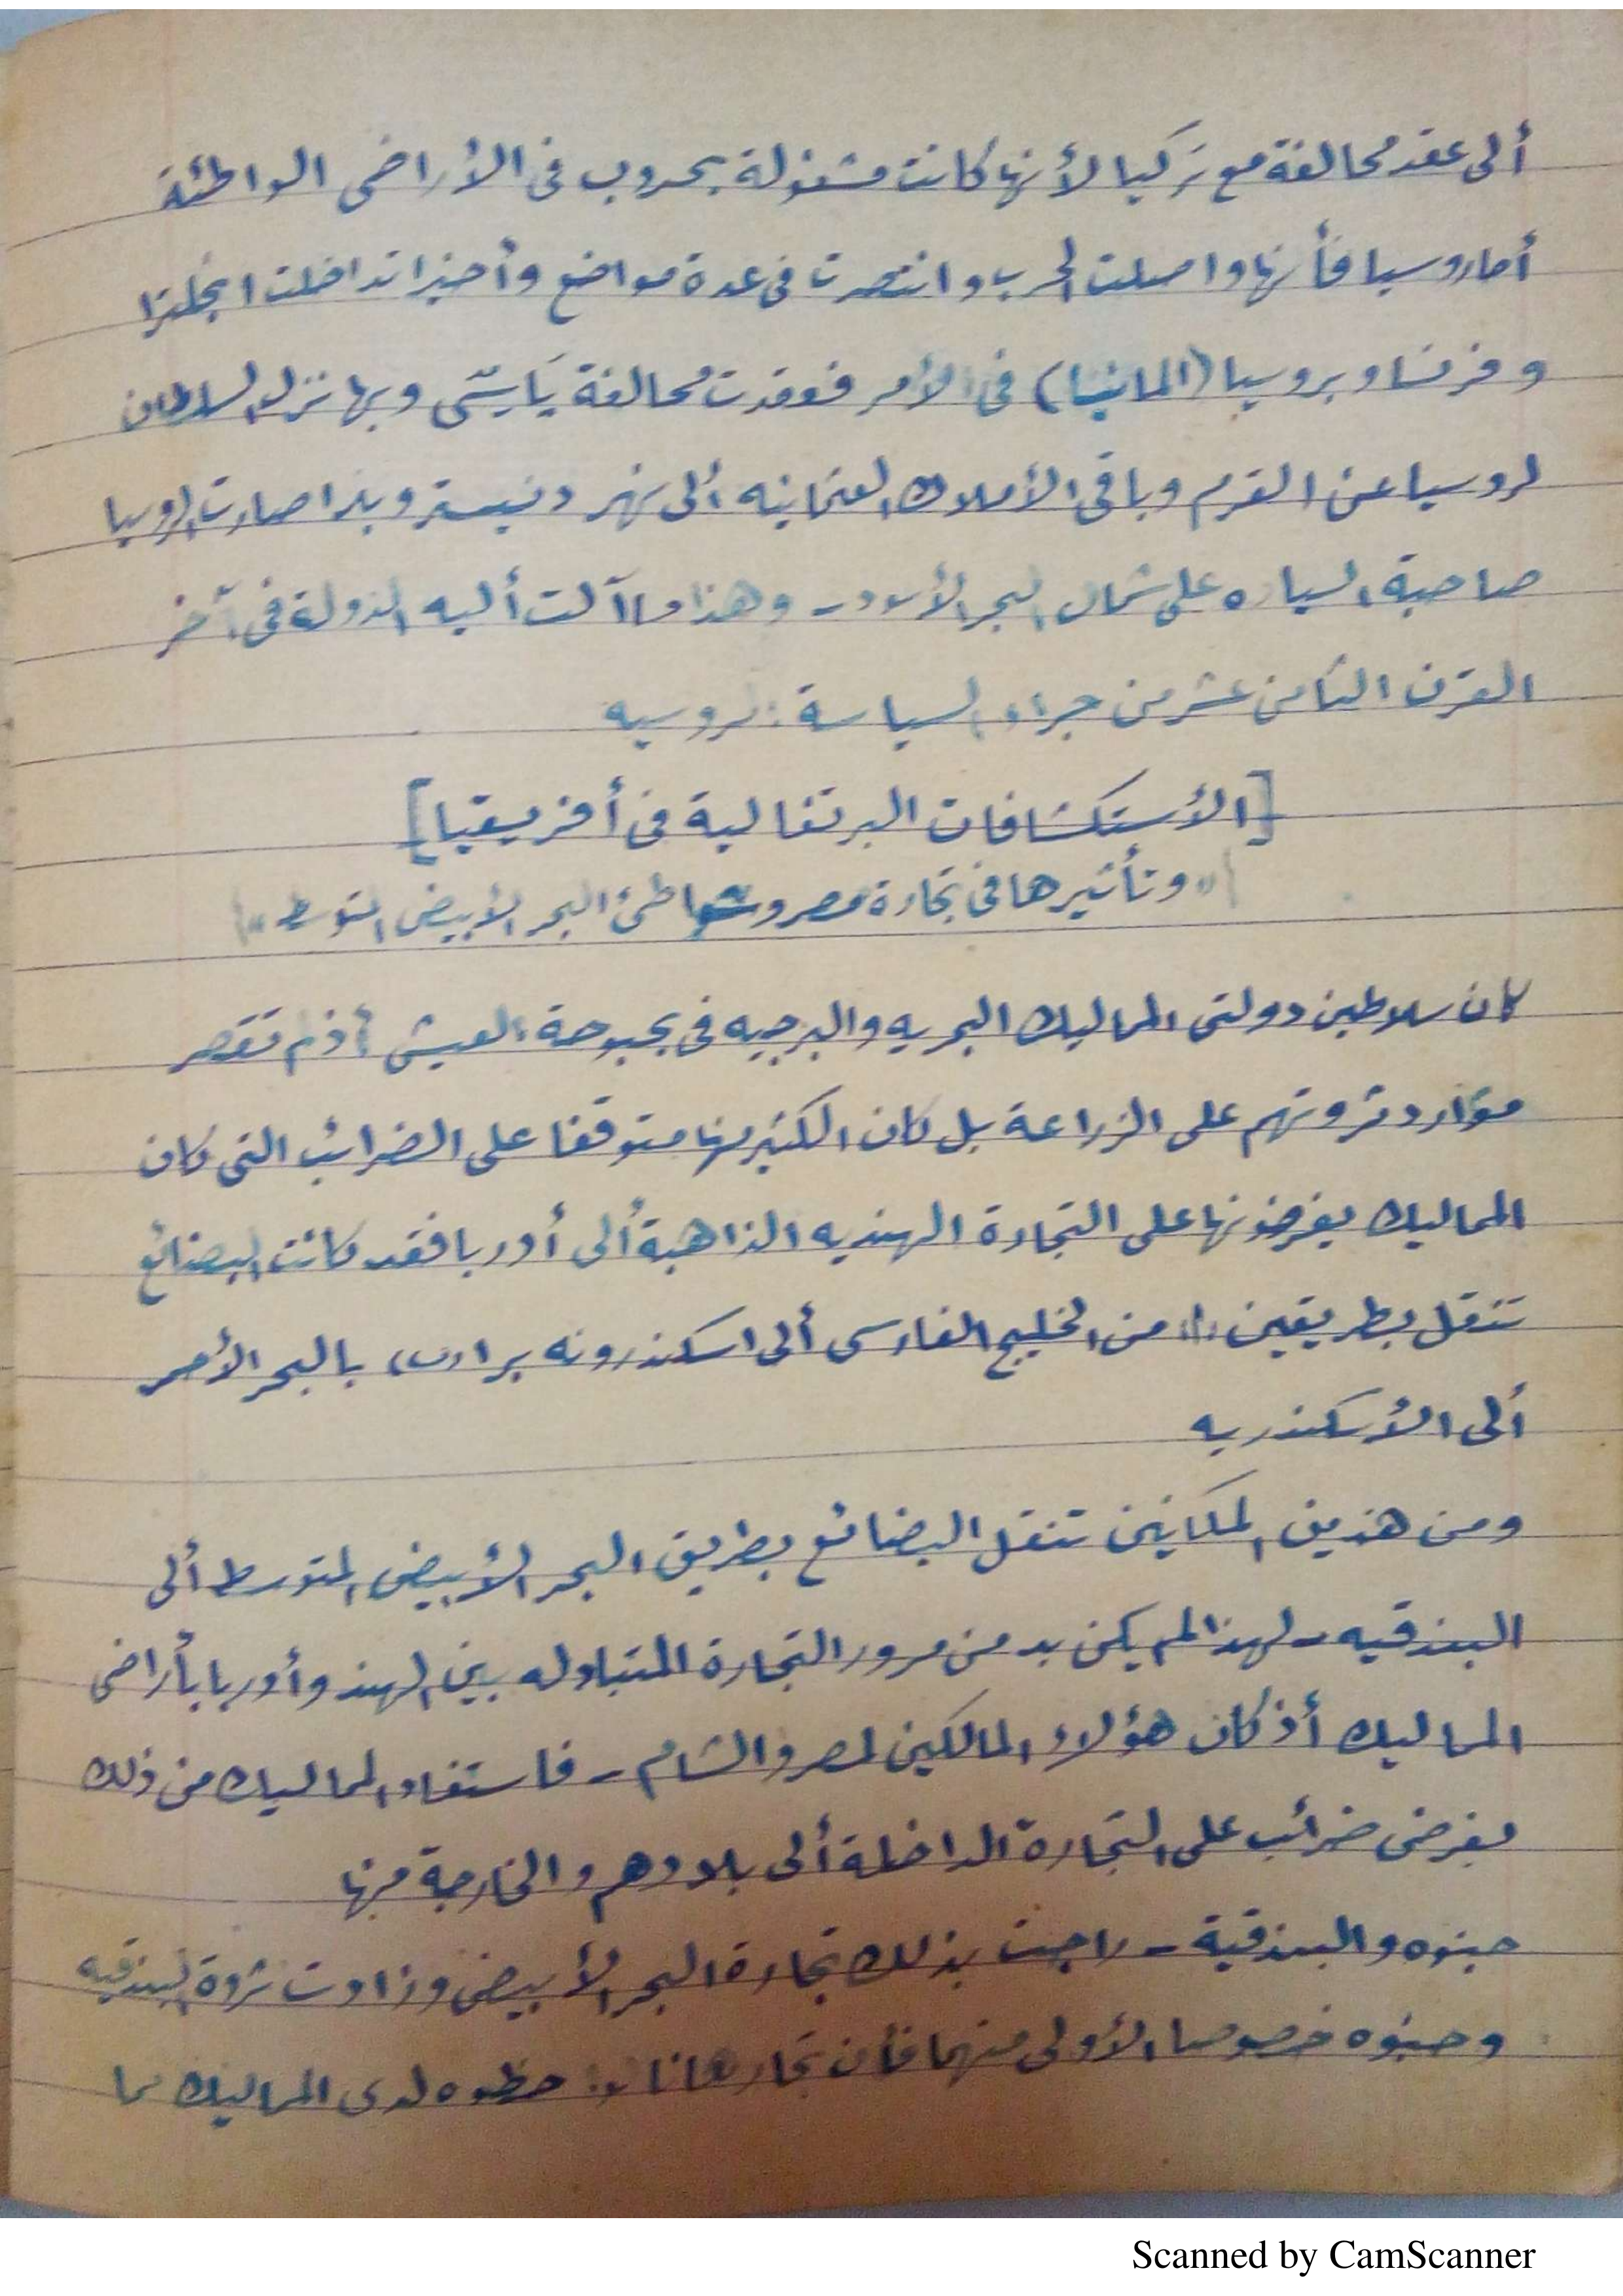 ألى عقد محالفة مع تركيا لأنها كانت مشغولة بحروب فى الأراضى الواطئة
أما روسيا فأنها واصلت الحرب وانتصرت فى عدة مواضع وأخيرا تداخلت انجلترا
وفرنسا وبروسيا (المانيا) فى الأمر فعقدت محالفة ياسى وبها تنزل السلطان
لروسيا عن القرم وباقى الأملاك العثمانيه ألى نهر دنيستر وبذا صارت روسيا
صاحبة السياده على شمال البحر الأسود - وهذا ما آلت أليه الدولة فى آخر
القرن الثامن عشر من جراء السياسة الروسيه
[الأستكشافات البرتغالية فى أفريقيا]
(("وتأثيرها فى تجارة مصر وشواطئ البحر الأبيض المتوسط"))
كان سلاطين دولتى المماليك البحريه والبرجيه فى بحبوحة العيش أذ لم تقتصر
موارد ثروتهم على الزراعة بل كان الكثير منها متوقفا على الضرائب التى كان
المماليك يفرضونها على التجارة الهنديه الذاهبة ألى أوربا فقد كانت البضائع
تنقل بطريقين (١) من الخليج الفارسى ألى اسكندرونه برا (ب) بالبحر الأحمر
ألى الأسكندريه
ومن هذين المكانين تنقل البضائع بطريق البحر الأبيض المتوسط ألى
البندقيه - لهذا لم يكن بد من مرور التجارة المتبادله بين الهند وأوربا بأراضى
المماليك أذ كان هؤلاء المالكين لمصر والشام - فاستفاد المماليك من ذلك
بفرض ضرائب على التجارة الداخلة ألى بلادهم والخارجة منها
جنوه والبندقية - راجت بذلك تجارة البحر الأبيض وزادت ثروة البندقيه
وجنوه خصوصا الأولى منهما فأن تجارها نالوا حظوه لدى المماليك لما
Scanned by CamScanner